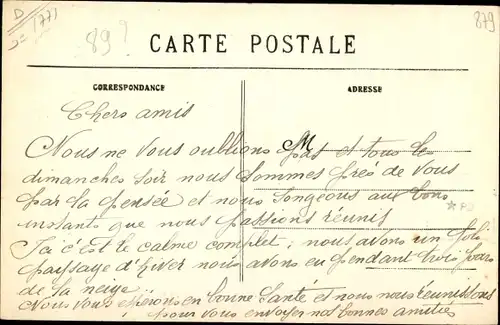 D
879
89?
CARTE POSTALE
CORRESPONDANCE
ADRESSE
Chers amis
M
Nous ne vous oublions pas et tous les
dimanches soir nous sommes près de vous
par la pensée et nous songeons aux bons
instants que nous passions réunis
Ici c'est le calme complet, nous avons un joli
paysage d'hiver nous avons eu pendant trois jours
de la neige.
Nous vous espérons en bonne santé et nous nous réunissons
pour vous envoyer nos bonnes amitiés